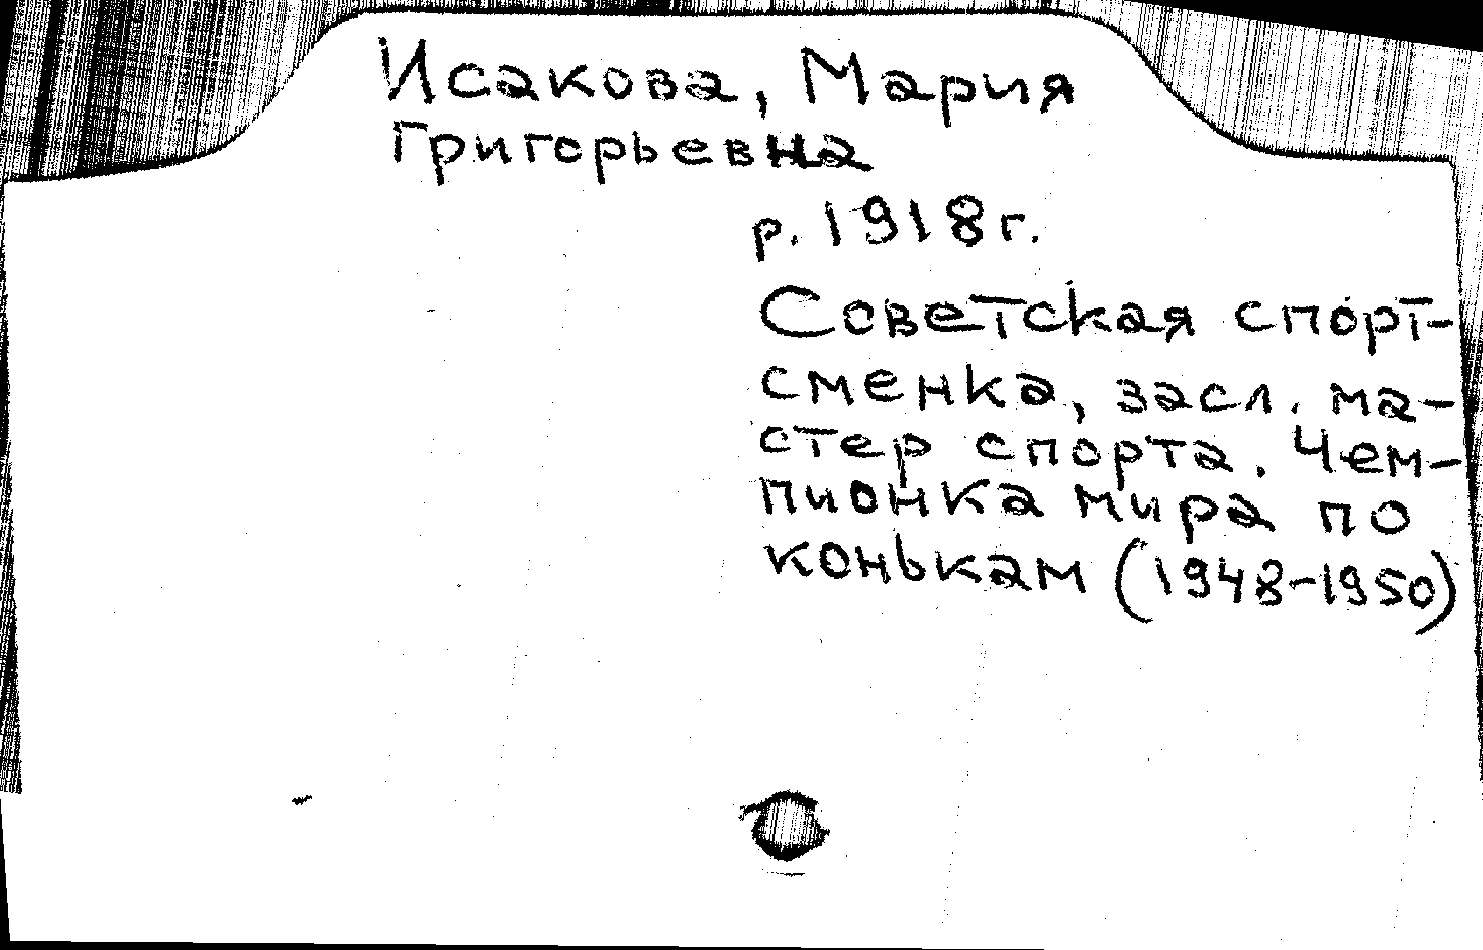 Исакова, Мария
Григорьевна
р. 1918 г.
Советская спорт-
сменка, засл. ма-
стер спорта. Чем-
пионка мира по
конькам (1948-1950)